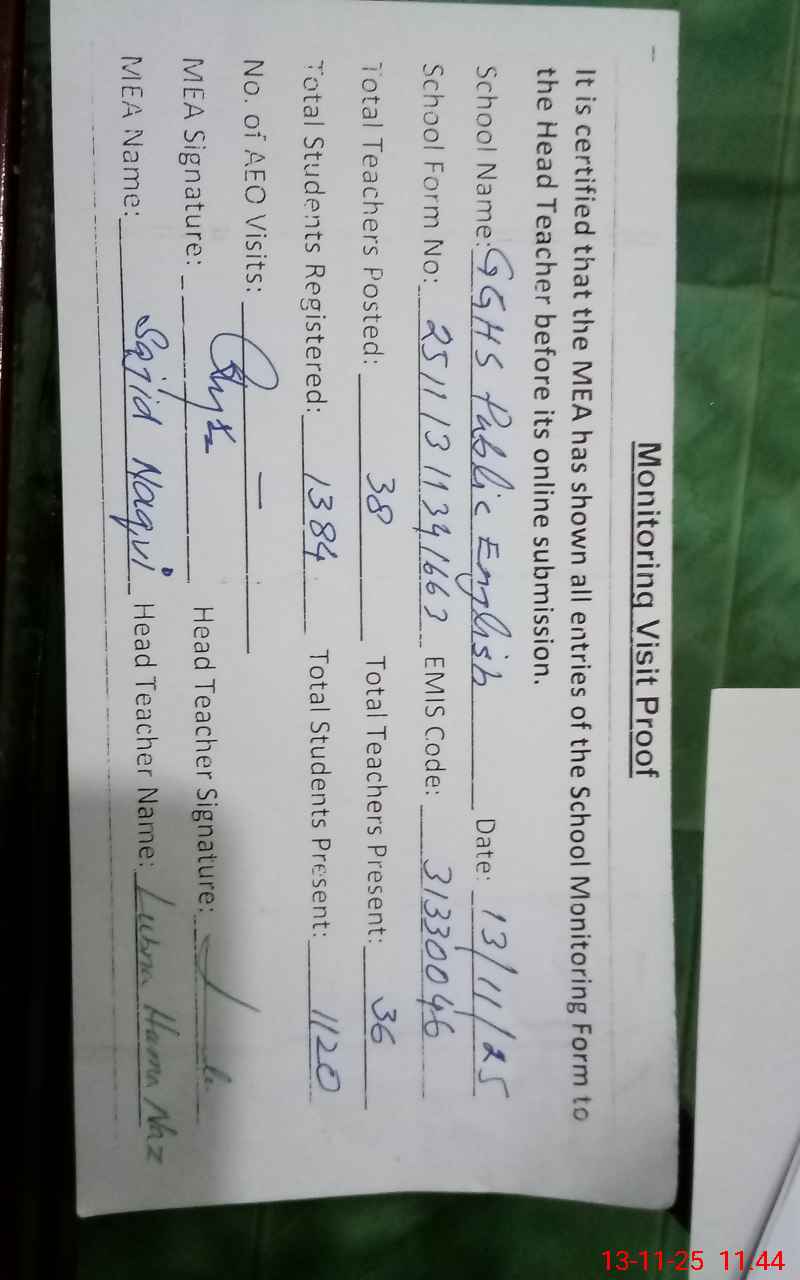 Monitoring Visit Proof
It is certified that the MEA has shown all entries of the School Monitoring Form to
the Head Teacher before its online submission.
School Name: GGHS Public English Date: 13/11/25
School Form No: 25111311341663 EMIS Code: 31330046
Total Teachers Posted: 38 Total Teachers Present: 36
Total Students Registered: 1384 Total Students Present: 1120
No. of AEO Visits: —
MEA Signature: Head Teacher Signature:
MEA Name: Sajid Naqvi Head Teacher Name: Lubna Naz
13-11-25 11:44